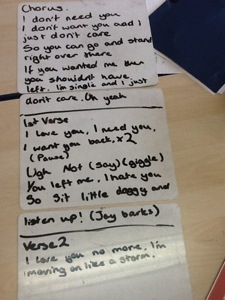 Chorus.
I don't need you
I don't want you and I
just don't care
So you can go and stand
right over there
If you wanted me then
you shouldnt have
left. Im single and I just
don't care. Oh yeah
1st Verse
I love you, I need you,
I want you back, x2
(Pause)
Ugh Not (say) (giggle)
You left me, I hate you
So Sit little doggy and
listen up! (Jay barks)
Verse 2
I love you no more, I'm
moving on like a storm.